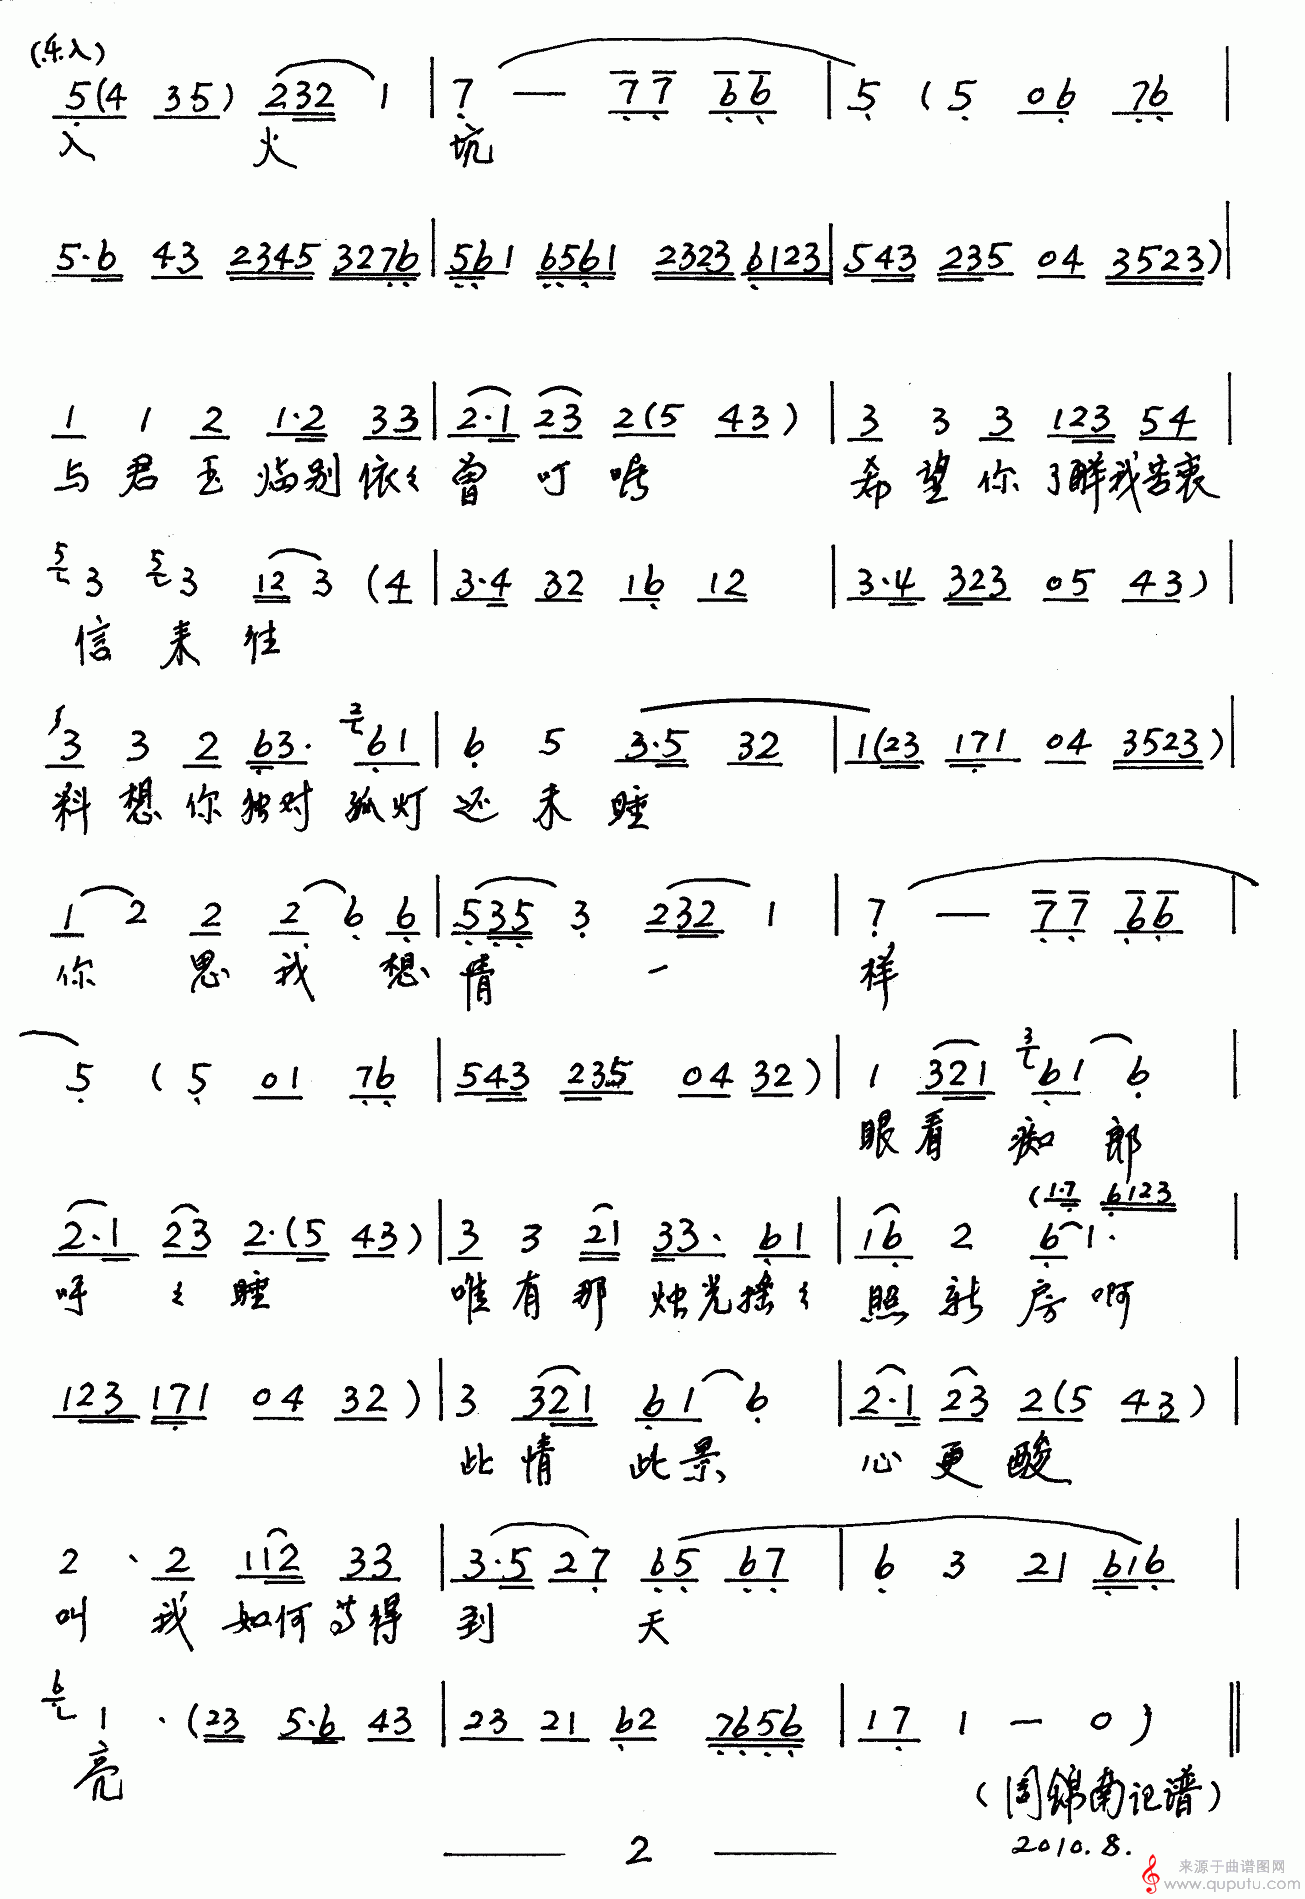 (乐入)
5(4 35) 232 1 | 7 — 77 66 | 5 (5 06 76 |
入 火 坑
5·6 43 2345 3276 | 561 6561 2323 6123 | 543 235 04 3523) |
1 1 2 1·2 33 | 2·1 23 2(5 43) | 3 3 3 123 54 |
与 君 玉 临别 依々 曾 叮 咛 希 望 你 了解我苦衷
5 3 5 3 12 3 (4 | 3·4 32 16 12 | 3·4 323 05 43) |
信 来 往
3 3 2 63· 2 61 | 6 5 3·5 32 | 1(23 171 04 3523) |
料 想 你 独对 孤灯 还 未 睡
1 2 2 2 6 6 | 535 3 232 1 | 7 — 77 66 |
你 思 我 想 情 一 样
5 (5 01 76 | 543 235 04 32) | 1 321 3 61 6 |
眼 看 痴 郎
(1·7 6123
2·1 23 2·(5 43) | 3 3 21 33· 61 | 16 2 6 1· |
呼 々 睡 唯 有 那 烛光摇々 照 新 房 啊
123 171 04 32) | 3 321 61 6 | 2·1 23 2(5 43) |
此 情 此 景 心 更 酸
2 · 2 112 33 | 3·5 27 65 67 | 6 3 21 616 |
叫 我 如何 等得 到 天
6 1 · (23 5·6 43 | 23 21 62 7656 | 17 1 — 0 ) ‖
亮
(周锦南记谱)
2010.8.
2
来源于曲谱图网
www.quputu.com